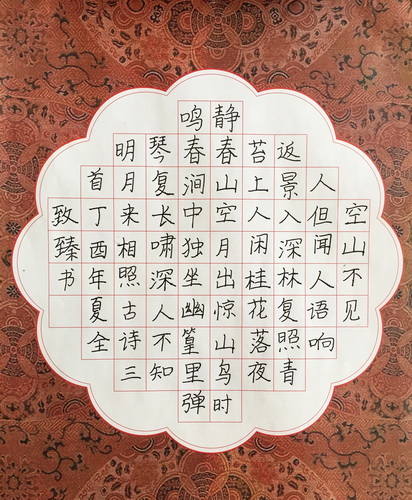 空山不见
人但闻人语响
返景入深林复照青
苔上人闲桂花落夜
静春山空月出惊山鸟时
鸣春涧中独坐幽篁里弹
琴复长啸深人不知
明月来相照古诗三
首丁酉年夏全
致臻书